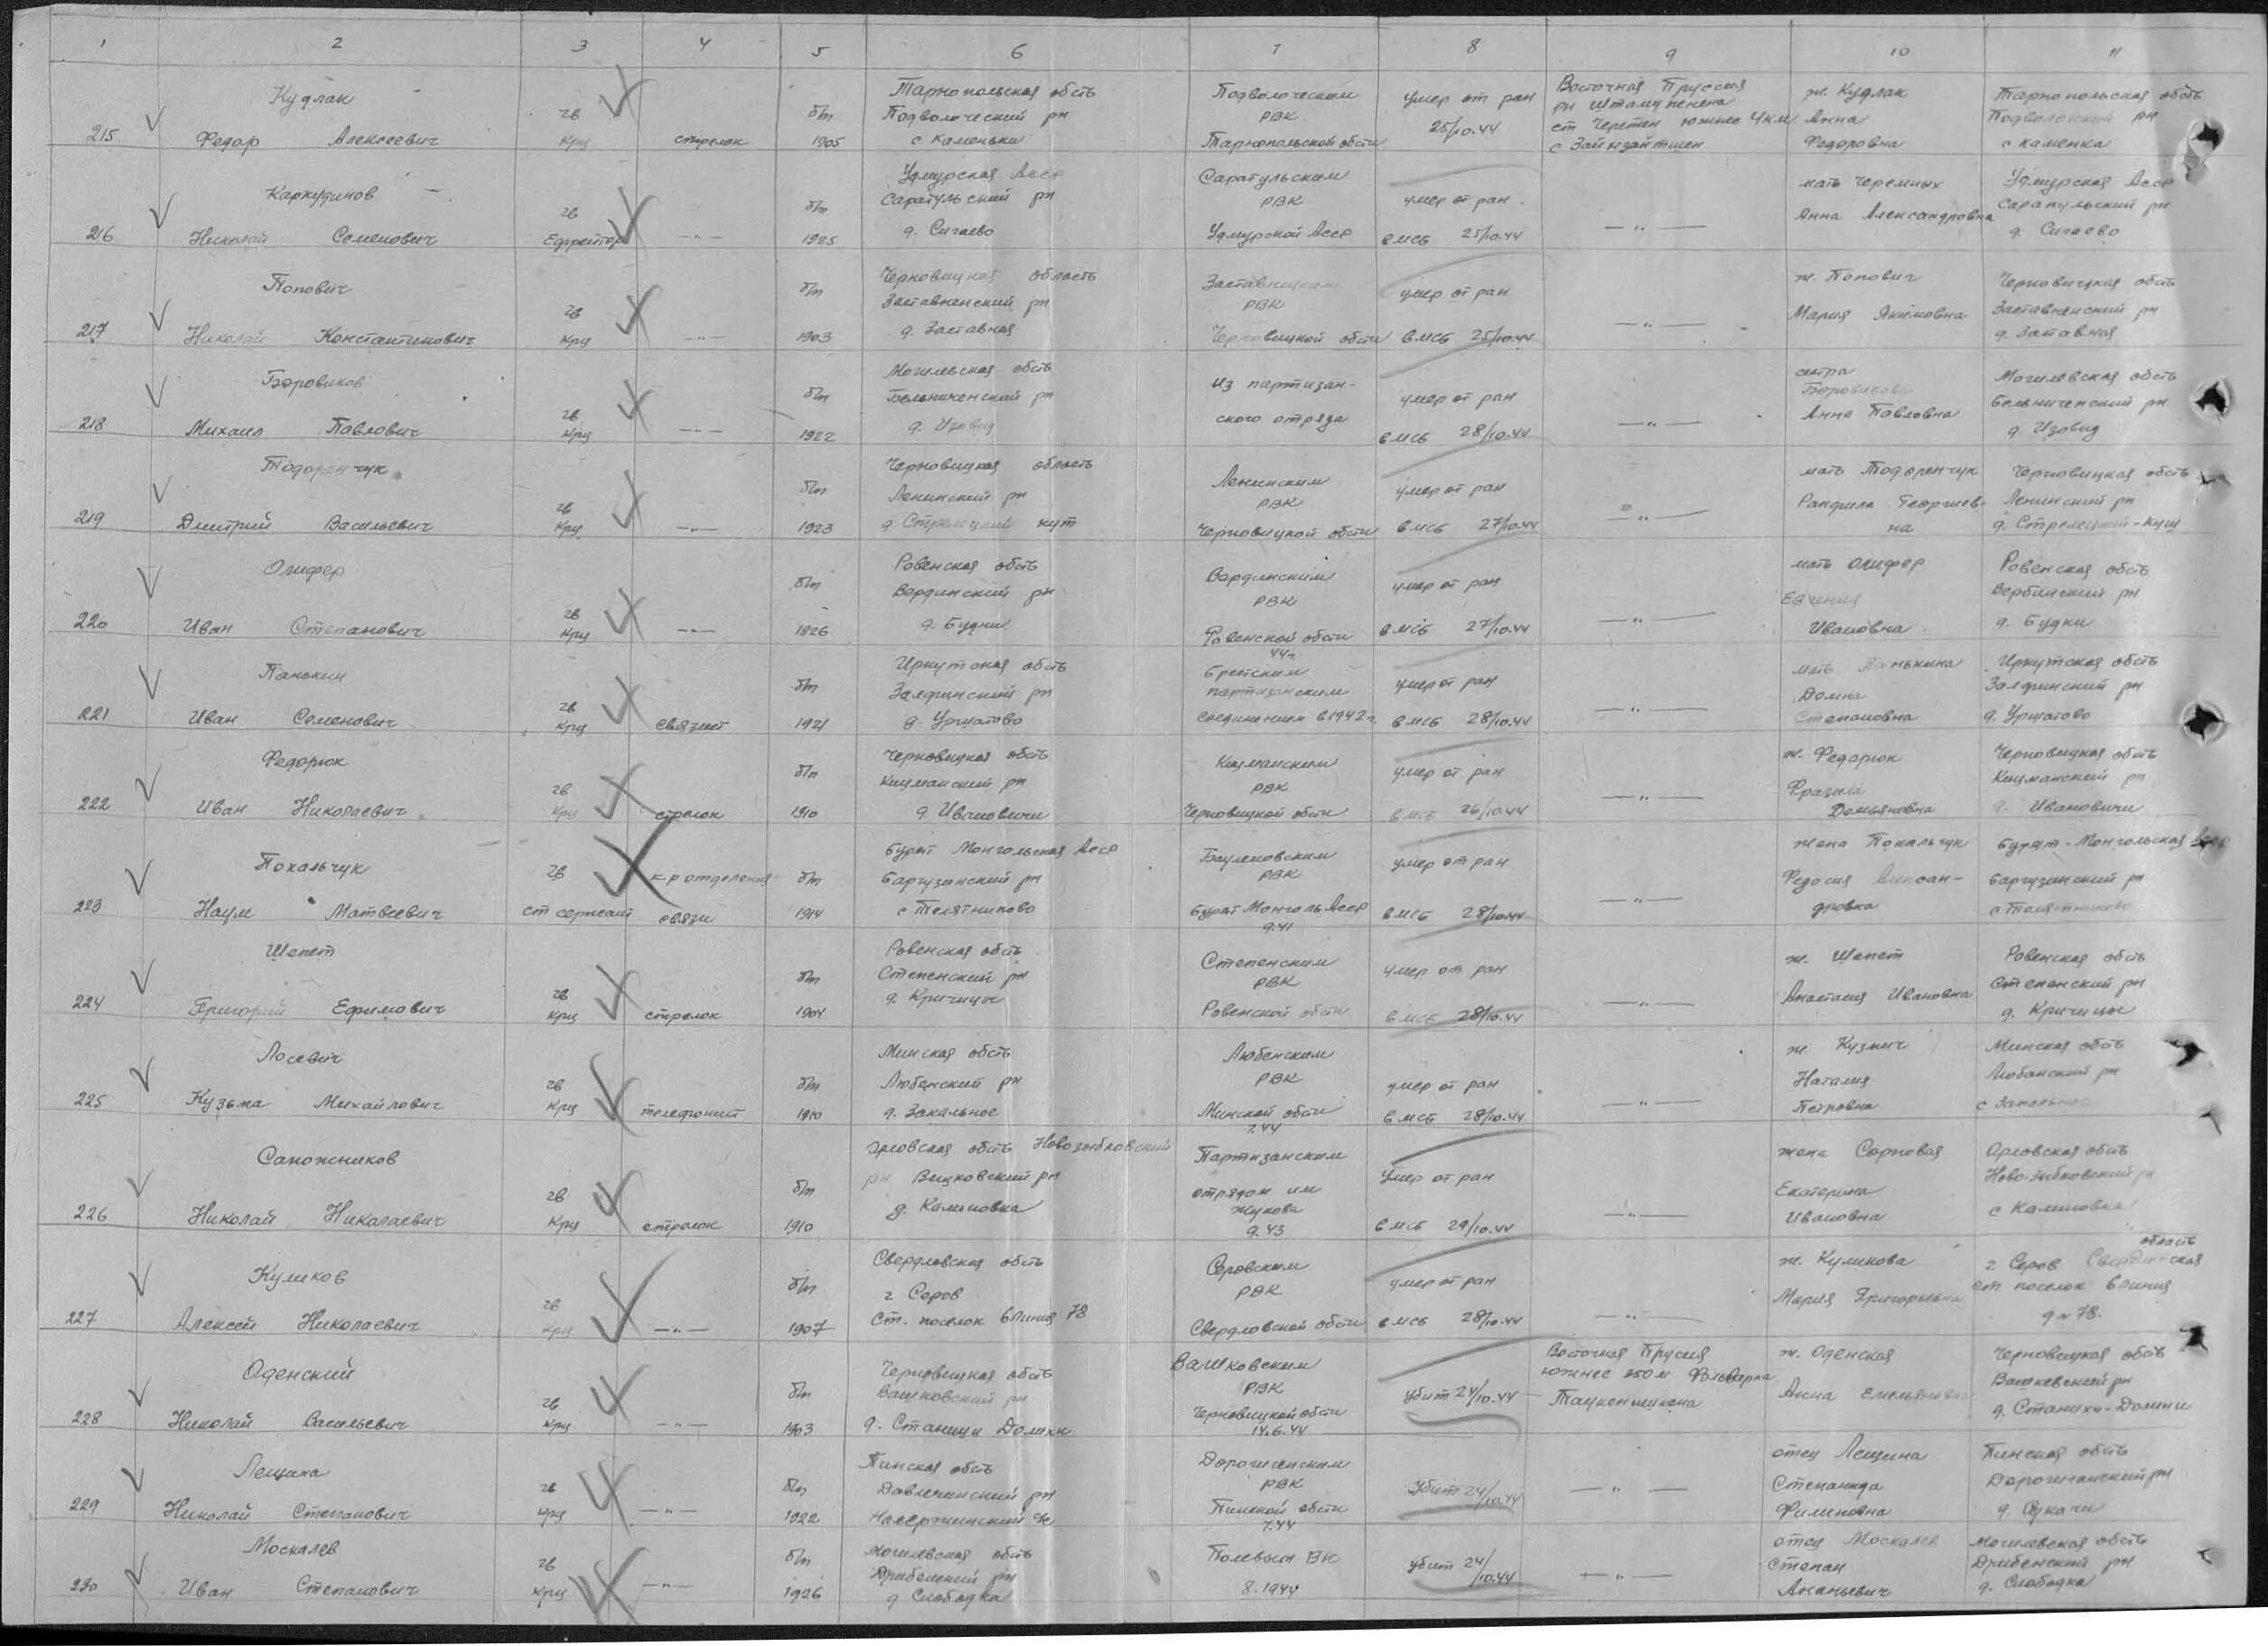 1 2 3 4 5 6 7 8 9 10 11
215 Кудлак Федор Алексеевич гв Крц стрелок б/п 1905 Тарнопольская обсть Подволоческий рн с Каменьки Подволоческим РВК Тарнопольской обсти умер от ран 25/10.44 Восточная Пруссия рн Шталупенена ст южнее 4 км с ж. Кудлак Анна Федоровна Тарнопольская обсть Подволоческий рн с Каменка
216 Каркудинов Николай Семенович гв Ефрейтор -"- б/п 1925 Удмурская Асср Сарапульский рн д. Сигаево Сарапульским РВК Удмурской Асср умер от ран в МСБ 25/10.44 -"- мать Черемных Анна Александровна Удмурская Асср Сарапульский рн д. Сигаево
217 Попович Николай Константинович гв Крц -"- б/п 1903 Черновицкая область Заставненский рн д. Заставная РВК Черновицкой обсти умер от ран в МСБ 25/10.44 -"- ж. Попович Мария Якимовна Черновицкая обсть Заставненский рн д. Заставная
218 Боровиков Михаил Павлович гв Крц -"- б/п 1922 Могилевская обсть Бельниченский рн д. Изовид Из партизанского отряда умер от ран в МСБ 28/10.44 -"- сестра Боровикова Анна Павловна Могилевская обсть Бельниченский рн д. Изовид
219 Тодоренчук Дмитрий Васильевич гв Крц -"- б/п 1923 Черновицкая область Ленинский рн д Стрелецкий кут Ленинским РВК Черновицкой обсти умер от ран в МСБ 27/10.44 -"- мать Тодоренчук Георгиевна Черновицкая обсть Ленинский рн д. Стрелецкий-кут
220 Олифер Иван Степанович гв Крц -"- б/п 1926 Ровенская обсть Вординский рн д. Будки Вординским РВК Ровенской обсти 44г. умер от ран в МСБ 27/10.44 -"- мать Олифер Ивановна Ровенская обсть Вербинский рн д. Будки
221 Панькин Иван Семенович гв Крц связист б/п 1921 Иркутская обсть рн д. Уршатово Брестским партизанским соединением в 1942 г. умер от ран в МСБ 28/10.44 -"- мать Панькина Домна Степановна Иркутская обсть рн д. Уршатово
222 Федорюк Иван Николаевич гв Крц стрелок б/п 1910 Черновицкая обсть Кицманский рн д Ивановичи Кицманским РВК Черновицкой обсти умер от ран в МСБ 26/10.44 -"- ж. Федорюк Домьяновна Черновицкая обсть Кицманский рн д. Ивановичи
223 Покальчук Наум Матвеевич гв ст сержант к-р отделения связи б/п 1914 Бурят Монгольская Асср Баргузинский рн с Телятниково Баунтовским РВК Бурят Монголь Асср 9.41 умер от ран в МСБ 28/10.44 -"- жена Покальчук Федосия Бурят-Монгольская Асср Баргузинский рн с Телятниково
224 Шепет Григорий Ефимович гв Крц стрелок б/п 1904 Ровенская обсть Степенский рн д. Кричицы Степенским РВК Ровенской обсти умер от ран в МСБ 28/10.44 -"- ж. Шепет Анастасия Ивановна Ровенская обсть Степенский рн д. Кричицы
225 Лосевич Кузьма Михайлович гв Крц телефонист б/п 1910 Минская обсть Любенский рн д. Закальное Любенским РВК Минской обсти 7.44 умер от ран в МСБ 28/10.44 -"- ж. Кузмич Наталия Петровна Минская обсть Любанский рн с Закальное
226 Сапожников Николай Николаевич гв Крц стрелок б/п 1910 Орловская обсть Новозыбковский рн рн д. Калиновка Партизанским отрядом им Жукова 9.43 Умер от ран в МСБ 29/10.44 -"- жена Екатерина Ивановна Орловская обсть Новозыбковский рн с Калиновка
227 Куликов Алексей Николаевич гв Крц -"- б/п 1907 Свердловская обсть г Серов Ст. поселок 6 Линия 78 Серовским РВК Свердловской обсти умер от ран в МСБ 28/10.44 -"- ж. Куликова Мария Григорьевна г Серов Свердловская область ст поселок 6 линия д № 78.
228 Оденский Николай Васильевич гв Крц -"- б/п 1903 Черновицкая обсть Вашковский рн д. Станицы Долихи Вашковским РВК Черновицкой обсти 14.6.44 убит 24/10.44 Восточная Прусия южнее 350 м Фольварка ж. Оденская Анна Емельяновна Черновицкая обсть Вашковский рн д.
229 Лещина Николай Степанович гв Крц -"- б/п 1922 Пинская обсть рн с/с Дорогиченским РВК Пинской обсти 7.44 Убит 24/10.44 -"- отец Лещина Степанида Филиповна Пинская обсть Дорогичанский рн д. Сукачи
230 Москалев Иван Степанович гв Крц -"- б/п 1926 Могилевская обсть Дрибенский рн д Слободка Полевым ВК 8.1944 убит 24/10.44 -"- отец Москалев Степан Ананьевич Могилевская обсть Дрибенский рн д. Слободка